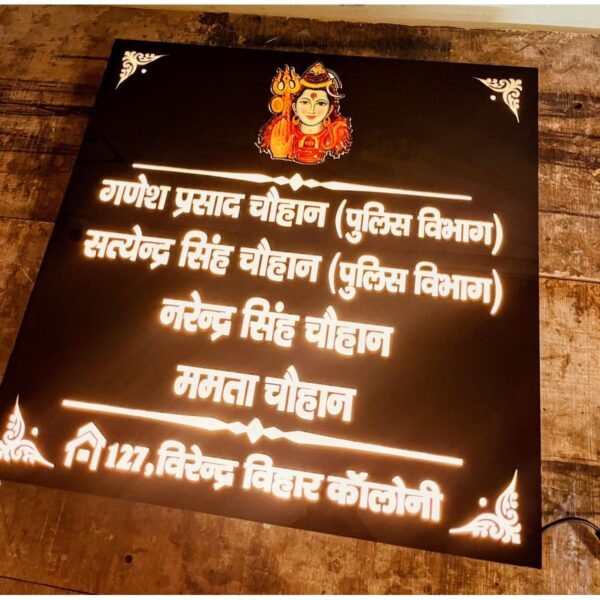 गणेश प्रसाद चौहान (पुलिस विभाग)
सत्येन्द्र सिंह चौहान (पुलिस विभाग)
नरेन्द्र सिंह चौहान
ममता चौहान
127, विरेन्द्र विहार कॉलोनी